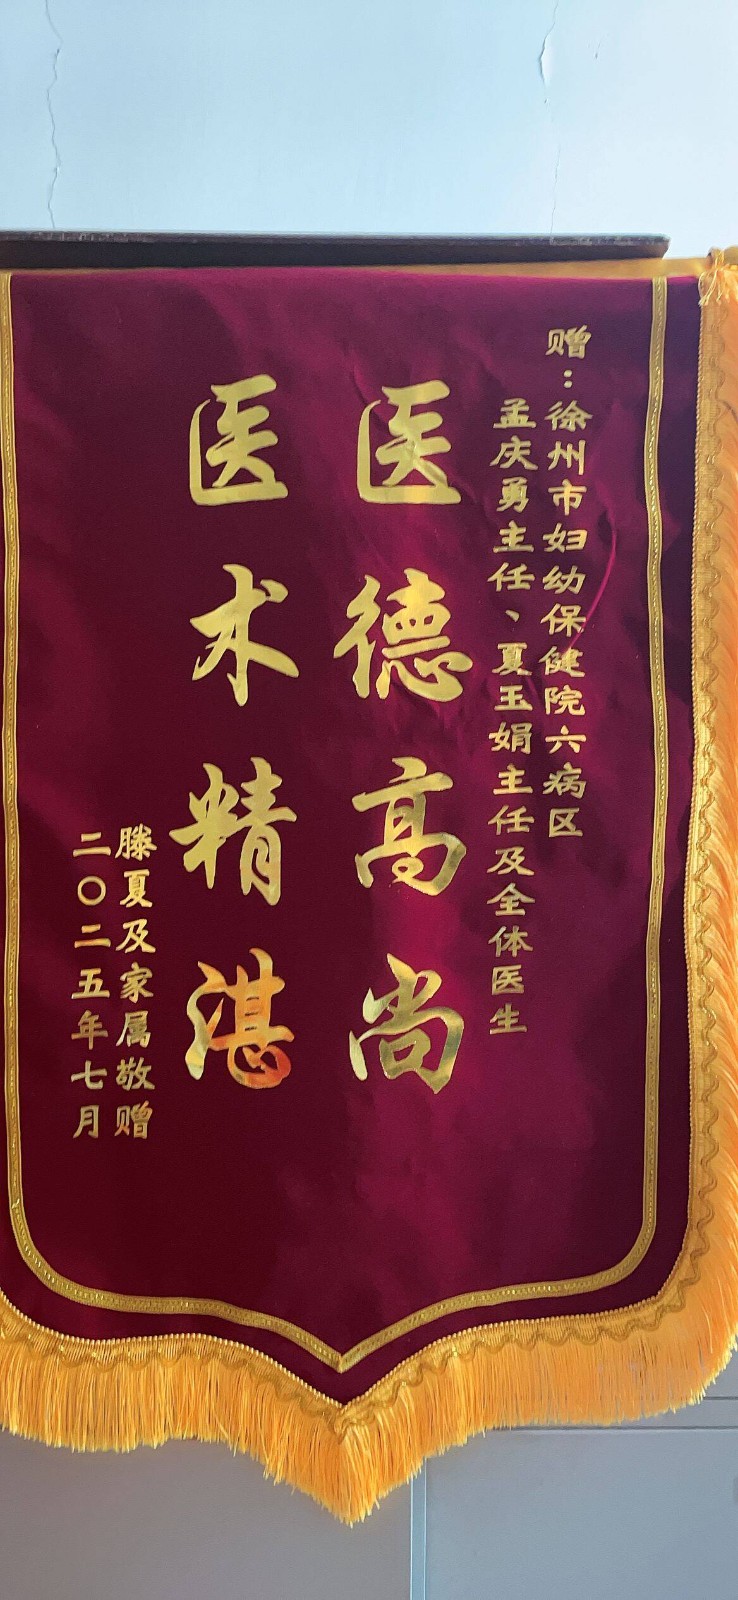 赠：徐州市妇幼保健院六病区
孟庆勇主任、夏玉娟主任及全体医生
医德高尚
医术精湛
滕夏及家属敬赠
二〇二五年七月